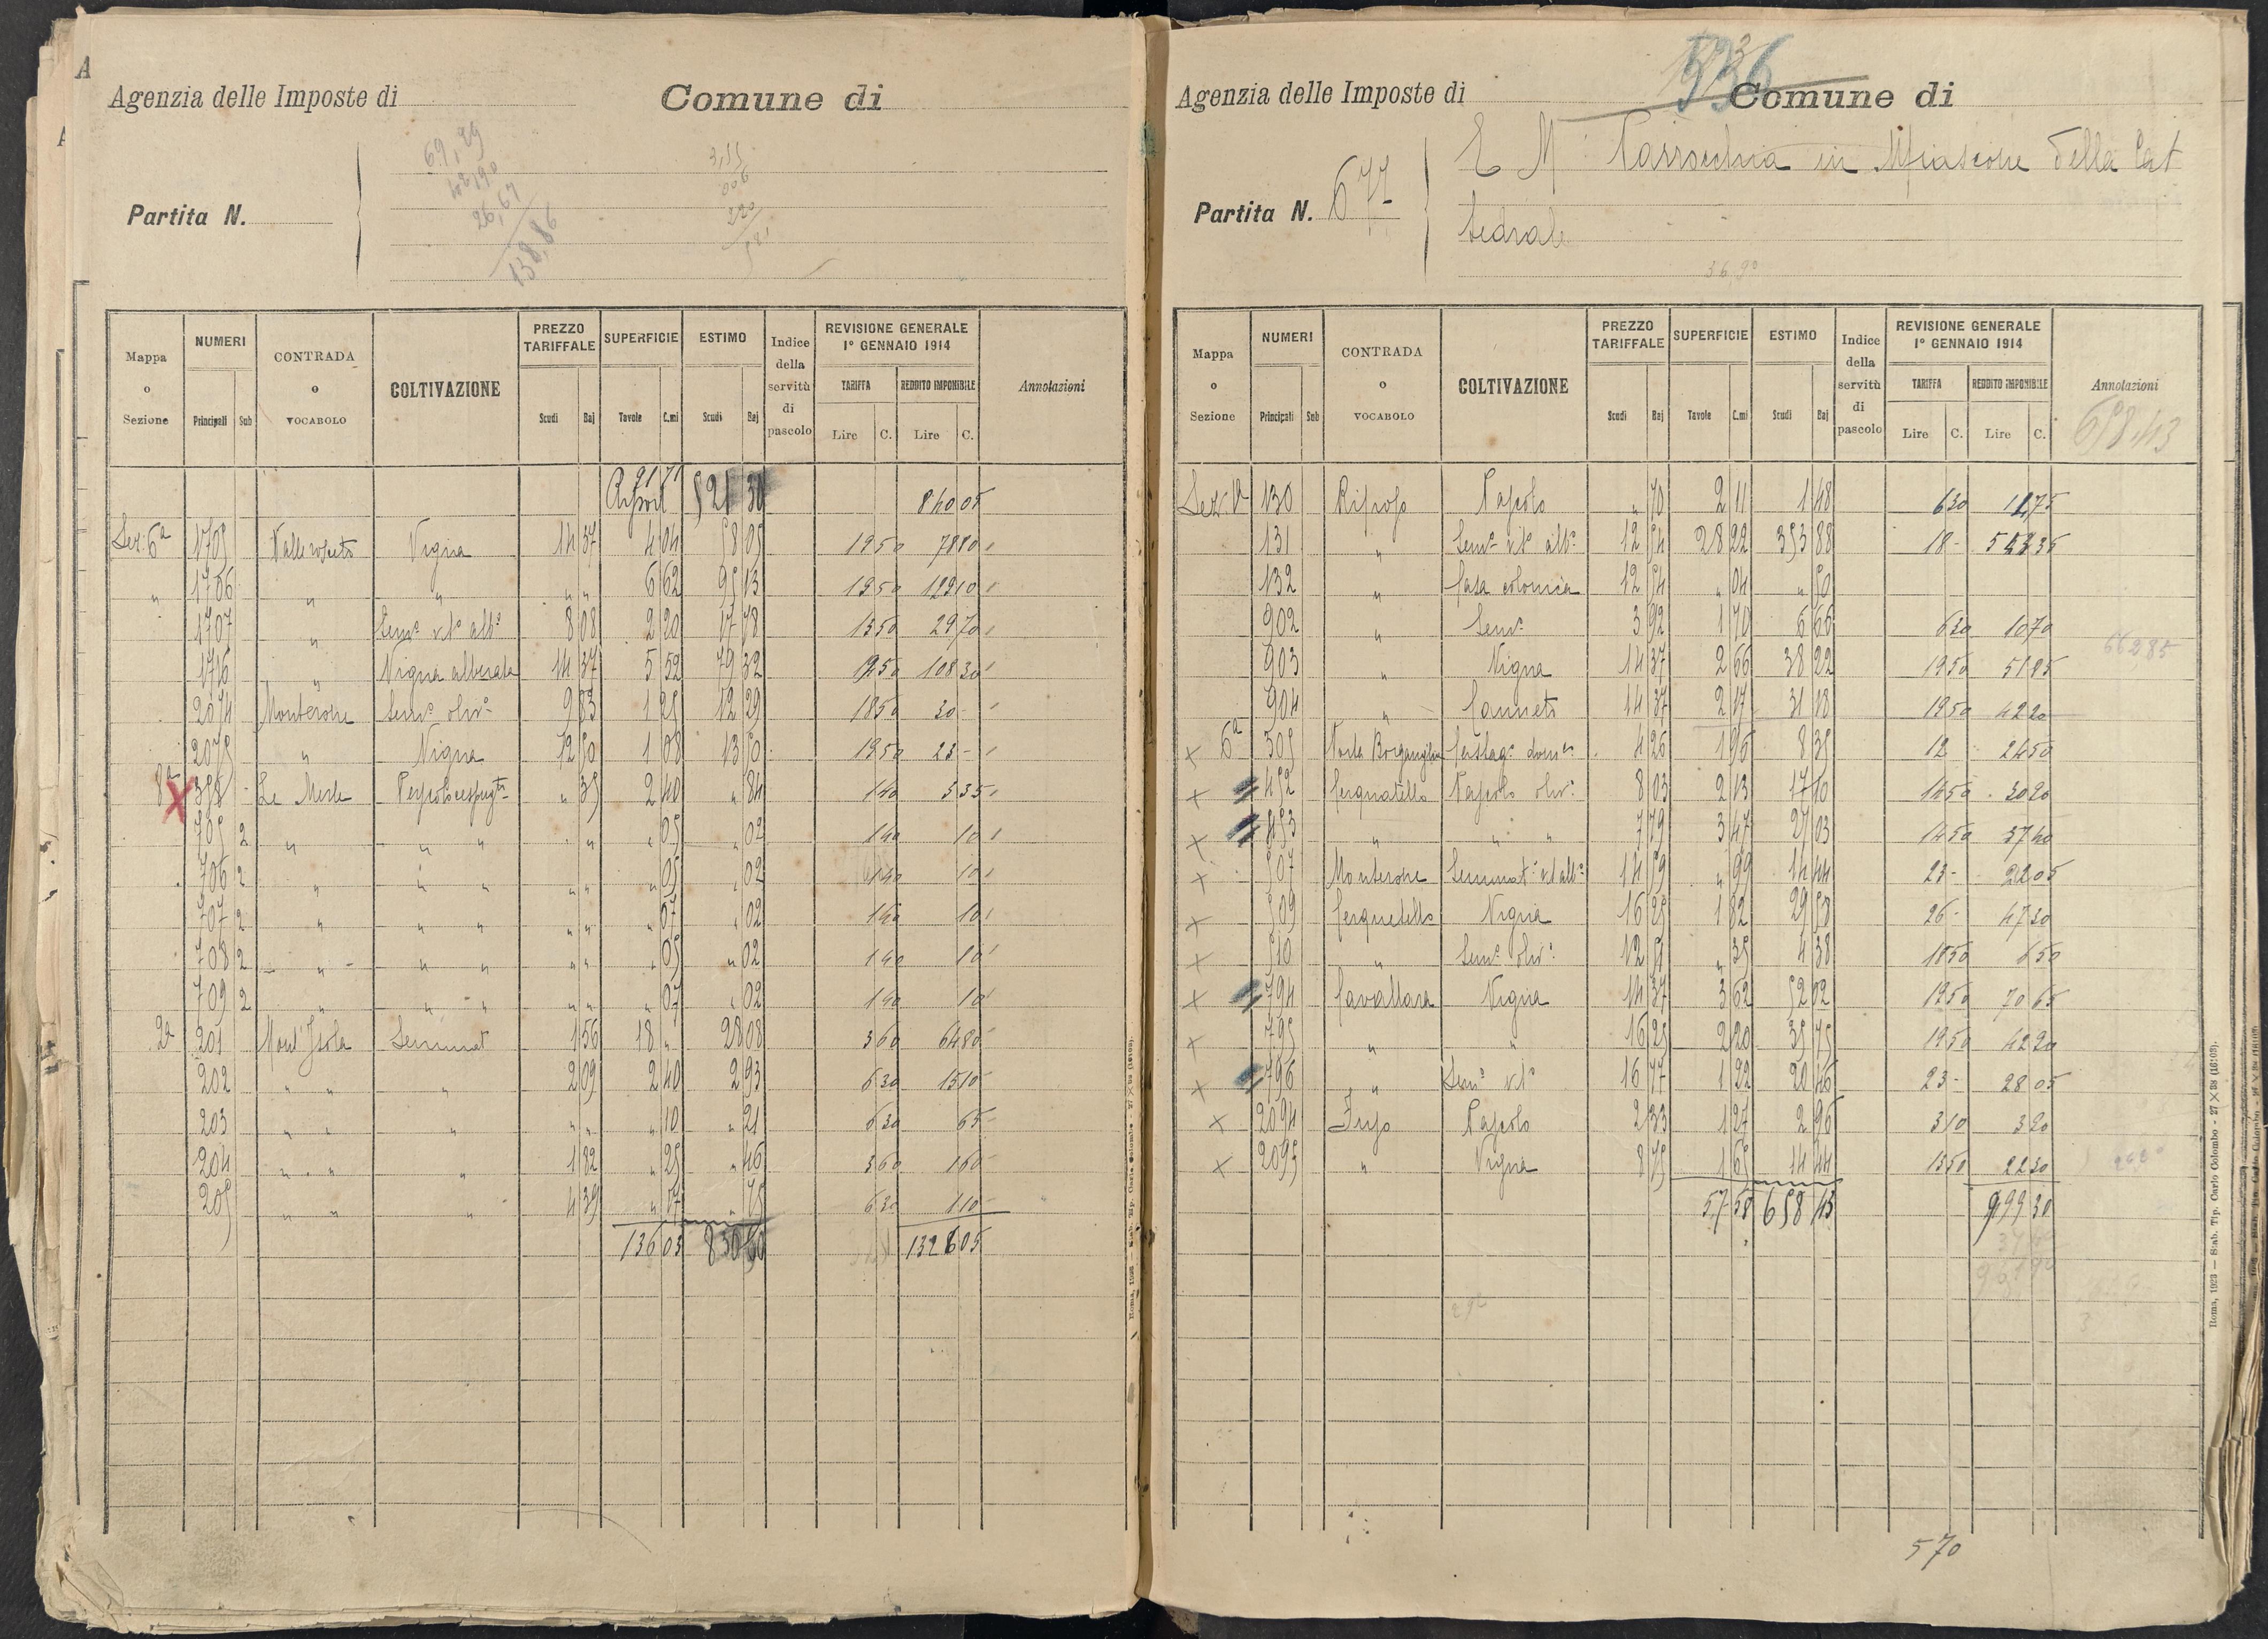 Agenzia delle Imposte di Comune di
69,29
42,90
26,67
138,86
3,55
006
220
581
Partita N.
Mappa o Sezione NUMERI CONTRADA o VOCABOLO COLTIVAZIONE PREZZO TARIFFALE SUPERFICIE ESTIMO Indice della servitù di pascolo REVISIONE GENERALE 1° GENNAIO 1914 Annotazioni
Principali Sub Scudi Baj Tavole C.mi Scudi Baj TARIFFA REDDITO IMPONIBILE
Lire C. Lire C.
91 71
Riport 521 30 840 05
Sez: 6a 1705 Valle Vigna 14 37 4 04 58 05 19 50 78 80
" 1706 " " " " 6 62 95 13 19 50 129 10
1707 " Sem° vt° alb° 8 08 2 20 17 78 13 50 29 70
1716 " Vigna alberata 14 37 5 52 79 32 19 50 108 30
2074 Monterone Sem° oliv° 9 83 1 25 12 29 18 50 30 -
2075 " Vigna 12 50 1 08 13 50 19 50 23 -
8a 398 Le Merle " 35 2 40 " 84 1 40 3 35
705 2 " " " " " 05 " 02 1 40 10
706 2 " " " " " " 05 " 02 1 40 10
707 2 " " " " " " 07 " 02 1 40 10
708 2 " " " " " " 05 " 02 1 40 10
709 2 " " " " " " 07 " 02 1 40 10
2a 201 Mont' Isola Seminat 1 56 18 " 28 08 3 60 64 80
202 " " " 2 09 2 40 2 93 6 30 15 10
203 " " " " " " 10 " 21 6 30 65
204 " " " 1 82 " 25 " 46 3 60 1 60
205 " " " 4 39 " 17 " 75 6 30 1 10
136 03 830 50 1326 05
Agenzia delle Imposte di Comune di
536
Partita N. 677
E M Parrocchia in della Cat
tedrale
36,90
Mappa o Sezione NUMERI CONTRADA o VOCABOLO COLTIVAZIONE PREZZO TARIFFALE SUPERFICIE ESTIMO Indice della servitù di pascolo REVISIONE GENERALE 1° GENNAIO 1914 Annotazioni
Principali Sub Scudi Baj Tavole C.mi Scudi Baj TARIFFA REDDITO IMPONIBILE
Lire C. Lire C.
658,43
Sez: 130 Riposo Pascolo " 70 2 11 1 48 6 30
131 " Sem° vt° alb° 12 54 28 22 353 88 18 -
132 " Casa colonica 12 54 " 04 " 50
902 " Sem° 3 92 1 70 6 66 6 30 10 70
903 " Vigna 14 37 2 66 38 22 19 50 51 85
904 " Canneto 14 37 2 17 31 18 19 50 42 20
× 6a 505 4 26 1 96 8 35 12 24 50
× 452 Cerquatello Pascolo oliv° 8 03 2 13 17 10 14 50 30 20
× 453 " " " 7 79 3 47 27 03 14 50 37 40
× 507 Monterone Seminat° vt alb° 14 59 " 99 14 44 23 - 22 05
× 509 Cerquetello Vigna 16 25 1 82 29 58 26 - 47 30
× 510 " Sem° oliv° 12 51 " 35 4 38 18 50 6 50
× 794 Cavallara Vigna 14 37 3 62 52 02 19 50 70 65
× 795 " " 16 25 2 20 35 75 19 50 42 90
× 796 " Sem° vt° 16 77 1 22 20 46 23 - 28 05
× 2094 Pascolo 2 33 1 27 2 96 3 10 3 20
× 2095 " Vigna 8 75 1 65 14 44 13 50 22 30
57 58 658 43 999 30
570
Roma, 1923 — Stab. Tip. Carlo Colombo - 27 × 38 (16:03).